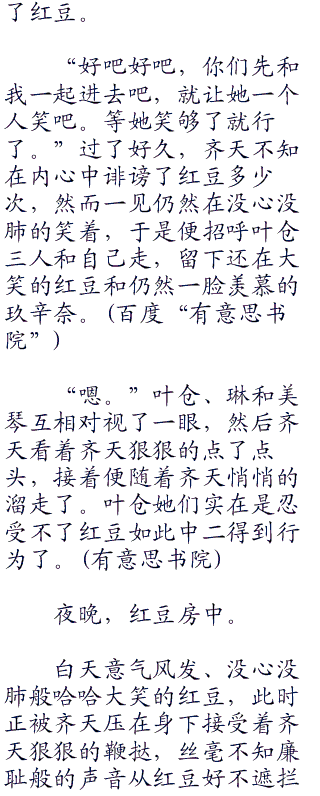 了红豆。
“好吧好吧，你们先和
我一起进去吧，就让她一个
人笑吧。等她笑够了就行
了。”过了好久，齐天不知
在内心中诽谤了红豆多少
次，然而一见仍然在没心没
肺的笑着，于是便招呼叶仓
三人和自己走，留下还在大
笑的红豆和仍然一脸羡慕的
玖辛奈。（百度“有意思书
院”）
“嗯。”叶仓、琳和美
琴互相对视了一眼，然后齐
天看着齐天狠狠的点了点
头，接着便随着齐天悄悄的
溜走了。叶仓她们实在是忍
受不了红豆如此中二得到行
为了。（有意思书院）
夜晚，红豆房中。
白天意气风发、没心没
肺般哈哈大笑的红豆，此时
正被齐天压在身下接受着齐
天狠狠的鞭挞，丝毫不知廉
耻般的声音从红豆好不遮拦